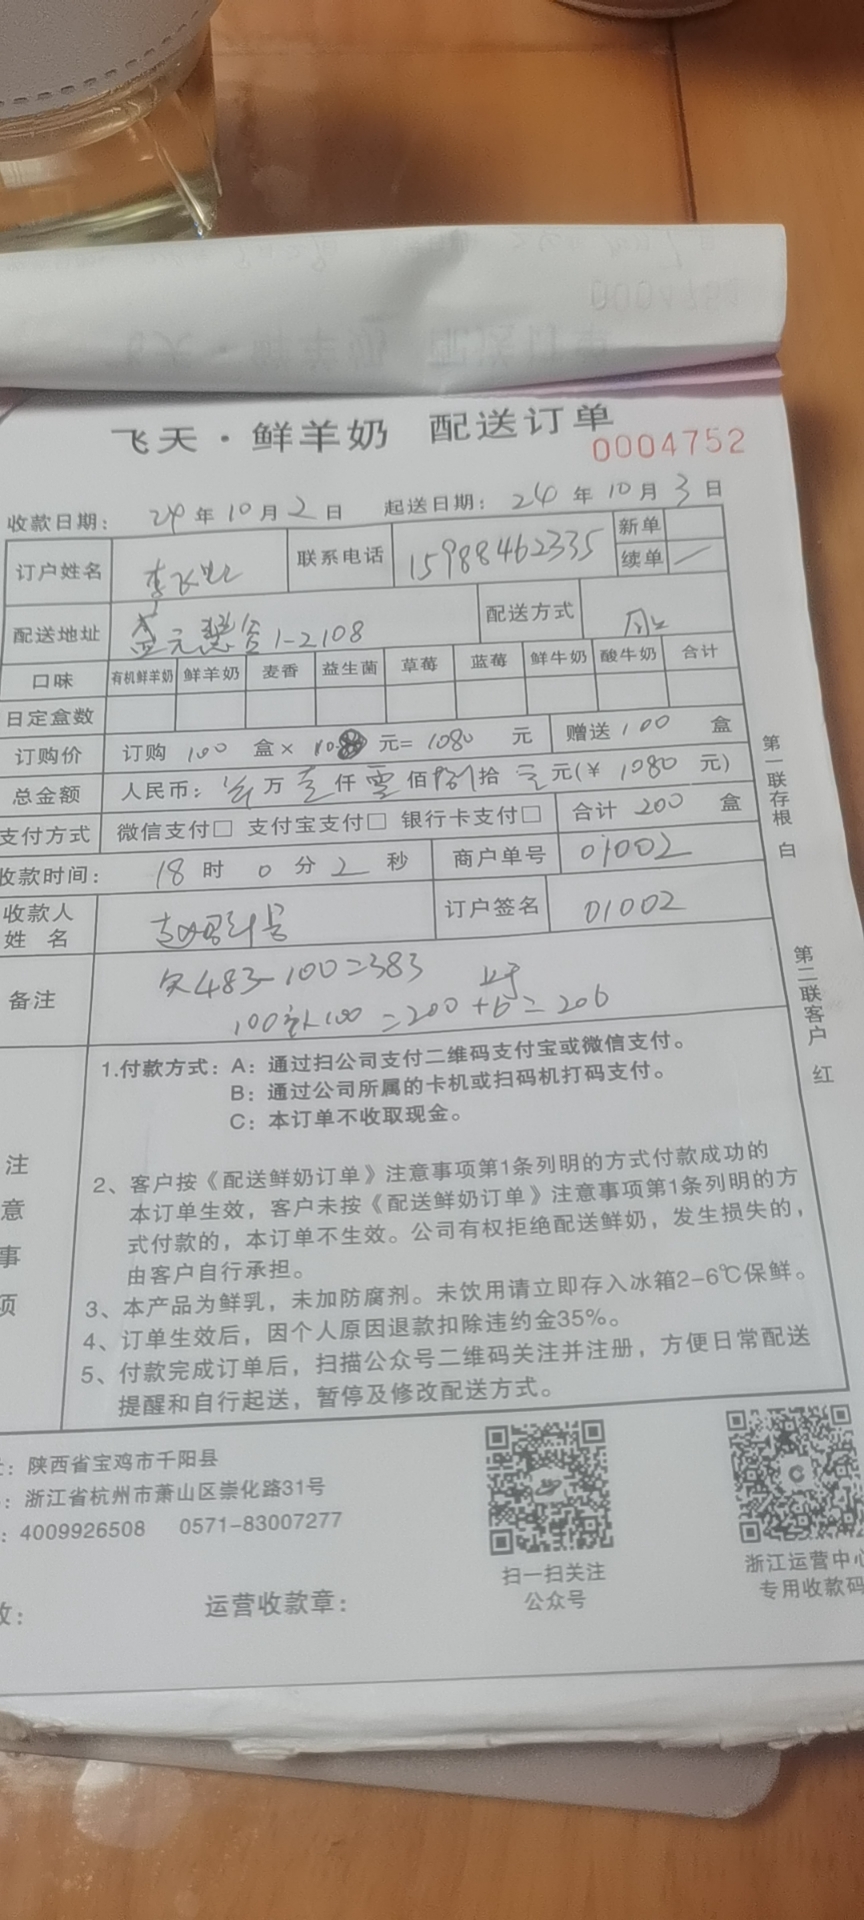 飞天·鲜羊奶 配送订单
0004752
收款日期： 24年10月2日 起送日期： 24年10月3日
订户姓名 李 联系电话 15988462335 新单
续单
配送地址 元 1-2108 配送方式
口味 有机鲜羊奶 鲜羊奶 麦香 益生菌 草莓 蓝莓 鲜牛奶 酸牛奶 合计
日定盒数
订购价 订购 100 盒× 10.8 元= 1080 元 赠送 100 盒
总金额 人民币： 万 壹 仟 零 佰 捌 拾 元(¥ 1080 元)
支付方式 微信支付□ 支付宝支付□ 银行卡支付□ 合计 200 盒
收款时间： 18 时 0 分 2 秒 商户单号 01002
收款人
姓 名
订户签名 01002
备注 欠483-100=383
100 100 =200+6=206
注意事项
1.付款方式：A：通过扫公司支付二维码支付宝或微信支付。
B：通过公司所属的卡机或扫码机打码支付。
C：本订单不收取现金。
2、客户按《配送鲜奶订单》注意事项第1条列明的方式付款成功的
本订单生效，客户未按《配送鲜奶订单》注意事项第1条列明的方
式付款的，本订单不生效。公司有权拒绝配送鲜奶，发生损失的，
由客户自行承担。
3、本产品为鲜乳，未加防腐剂。未饮用请立即存入冰箱2-6℃保鲜。
4、订单生效后，因个人原因退款扣除违约金35%。
5、付款完成订单后，扫描公众号二维码关注并注册，方便日常配送
提醒和自行起送，暂停及修改配送方式。
第一联存根 白
第二联客户 红
：陕西省宝鸡市千阳县
：浙江省杭州市萧山区崇化路31号
：4009926508 0571-83007277
扫一扫关注
公众号
浙江运营中心
专用收款码
运营收款章：